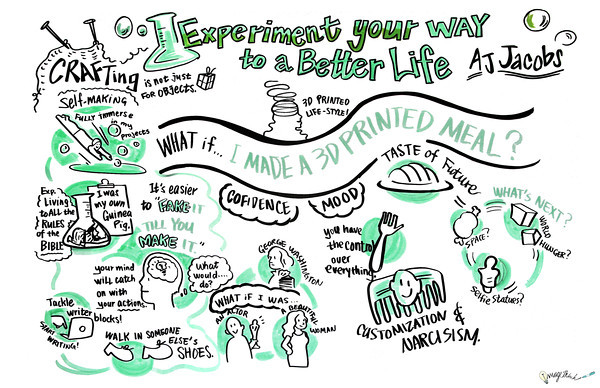 Experiment your WAY
to a Better Life
AJ Jacobs
CRAFTing
is not just
FOR OBJECTS.
Self-MAKING
FULLY immerse
in my
projects
3D PRINTED
LIFE-STYLE!
WHAT if... I MADE A 3D PRINTED MEAL?
TASTE of Future
COFIDENCE
MOOD
Exp.
Living
to ALL the
RULES
of the
BIBLE
I was
my own
Guinea
Pig.
It's easier
to "FAKE IT
TILL YOU
MAKE IT."
your mind
will catch
on with
your actions.
What
would....
do?
Tackle
writer blocks!
START
WRITING!
WALK IN SOMEONE
ELSE'S
SHOES.
GEORGE WASHINGTON
WHAT IF I WAS...
AN ACTOR
A BEAUTIFUL
WOMAN
you have
the control
over
everything!
CUSTOMIZATION &
NARCISISM.
WHAT'S NEXT?
SPACE?
WORLD
HUNGER?
Selfie Statues?